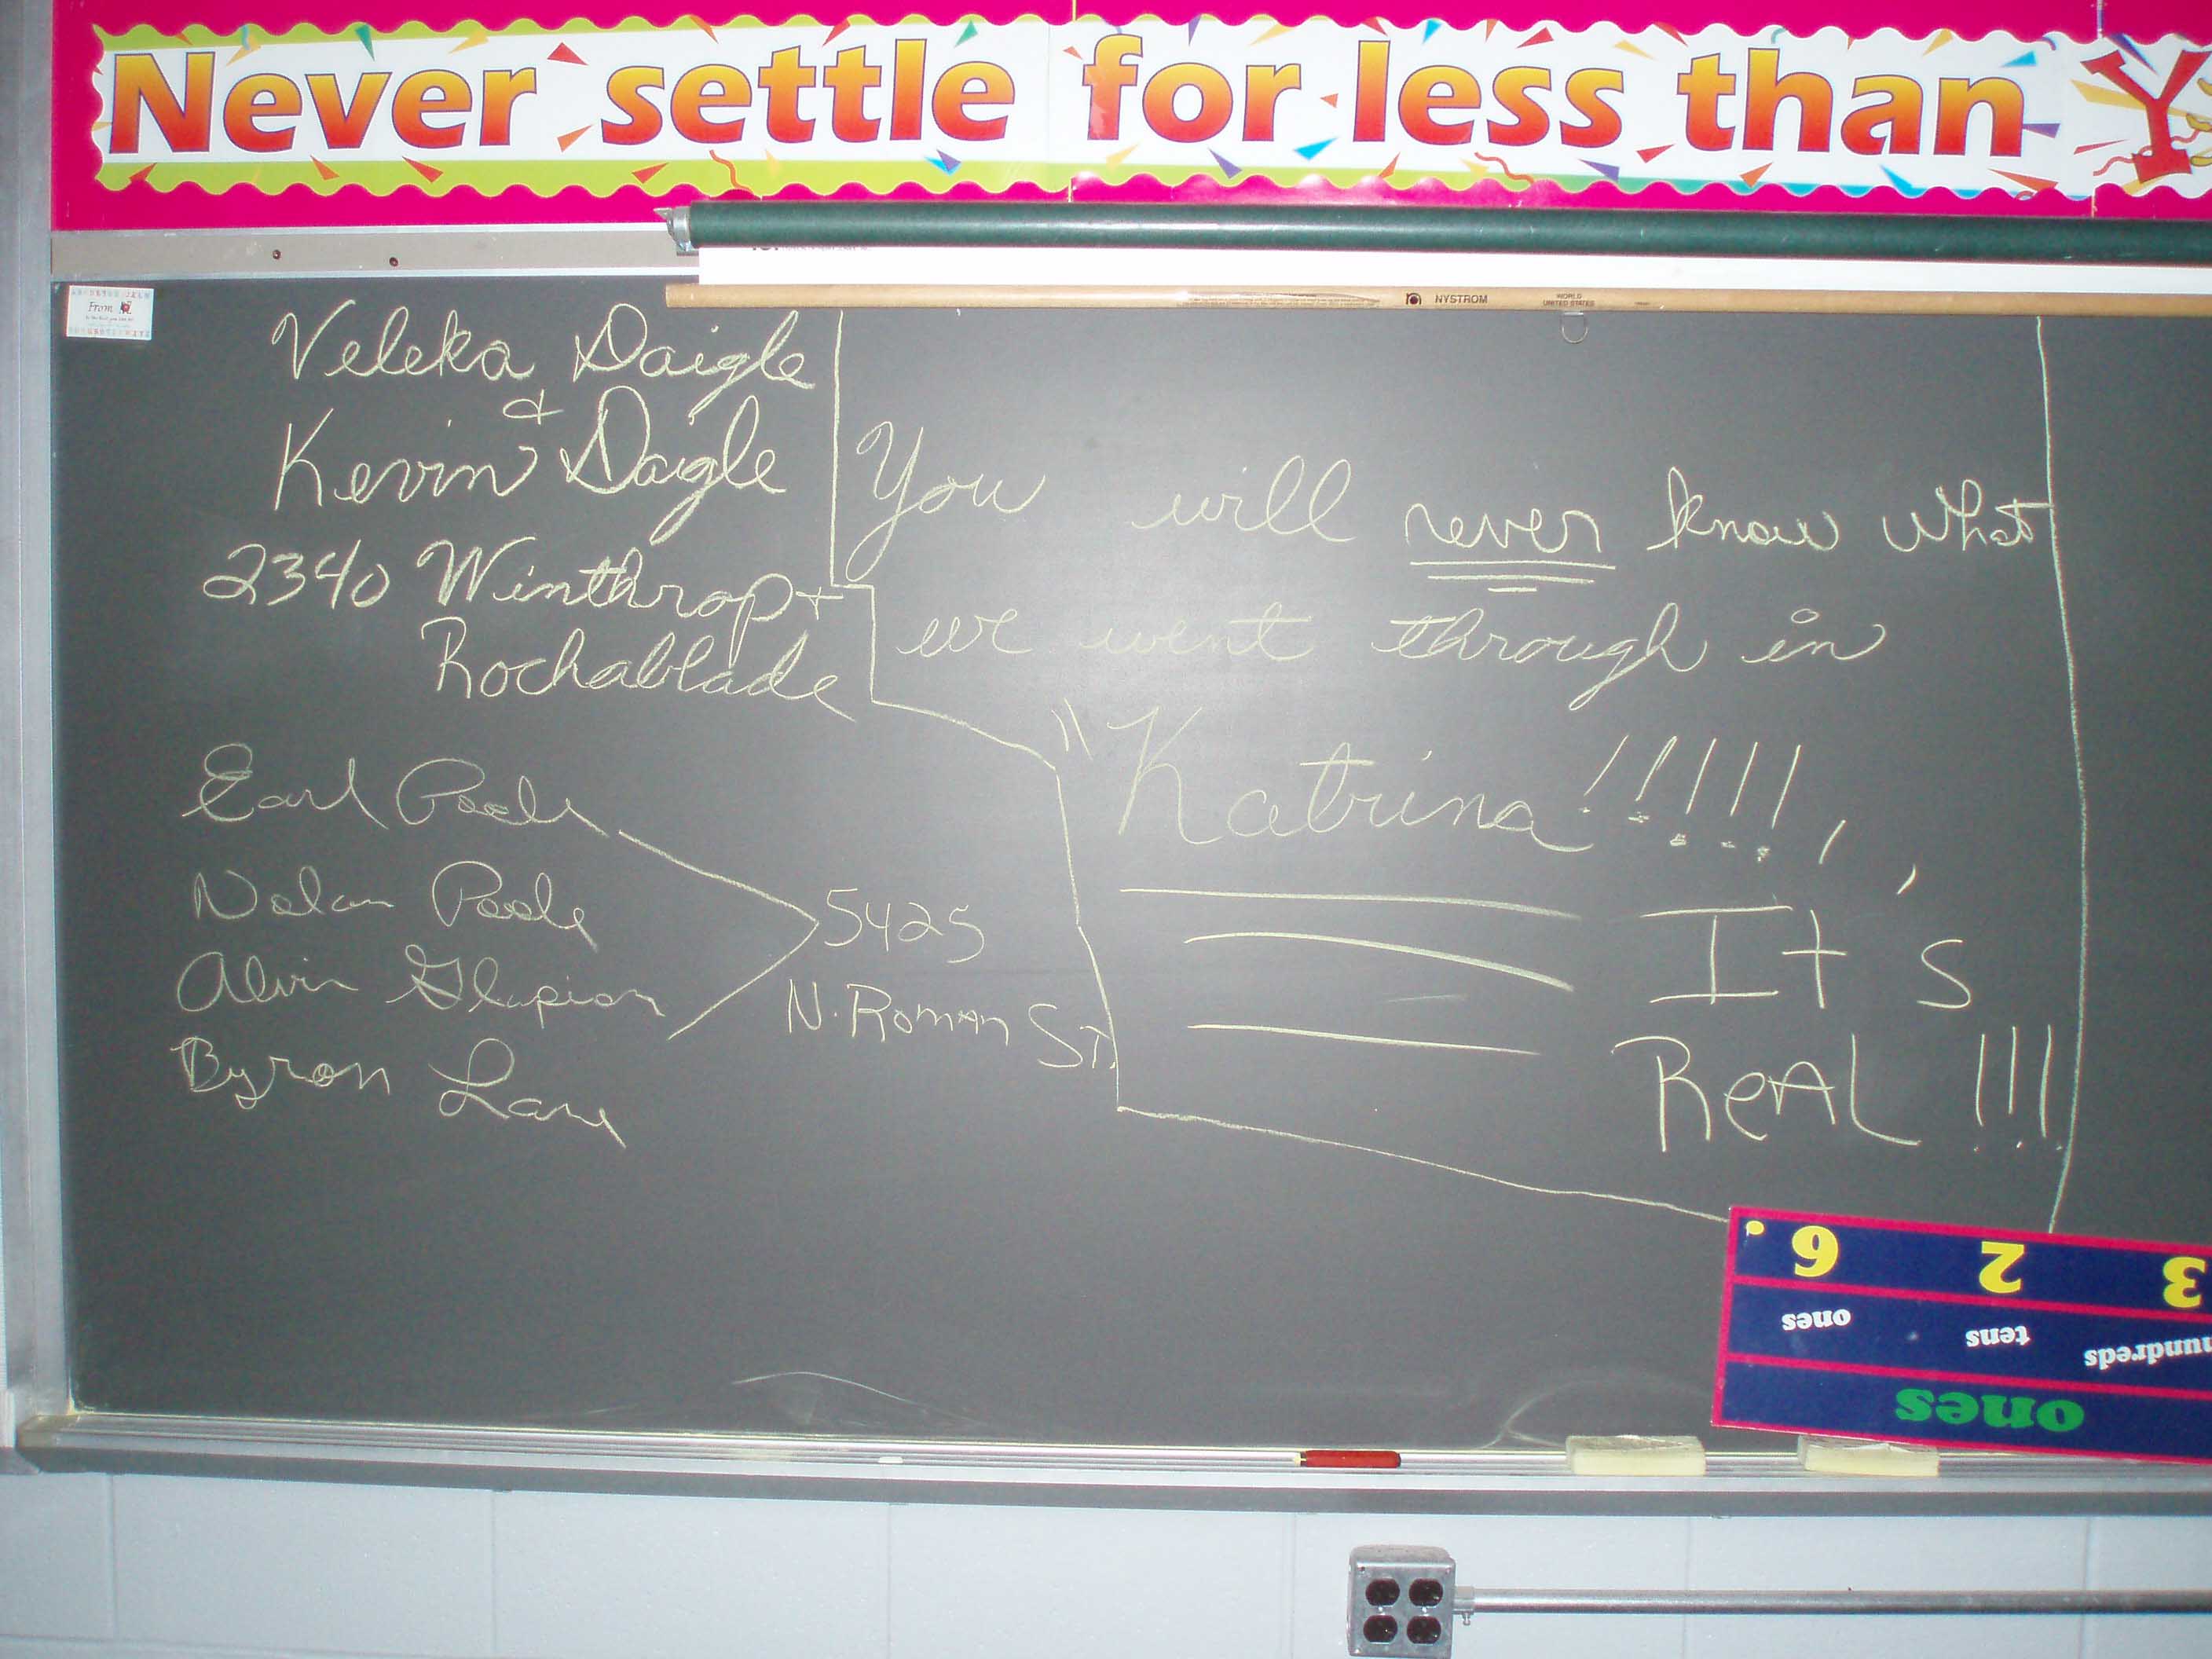 Never settle for less than Y
NYSTROM
WORLD
UNITED STATES
From
Veleka Daigle
&
Kevin Daigle
2340 Winthrop +
Rochablade
Earl Poole
Nolan Poole
Alvin Glapion
Byron Lane
5425
N. Roman St.
You will never know what
we went through in
"Katrina!!!!!,,
It's
ReAL !!!
6 2 3
ones tens hundreds
ones